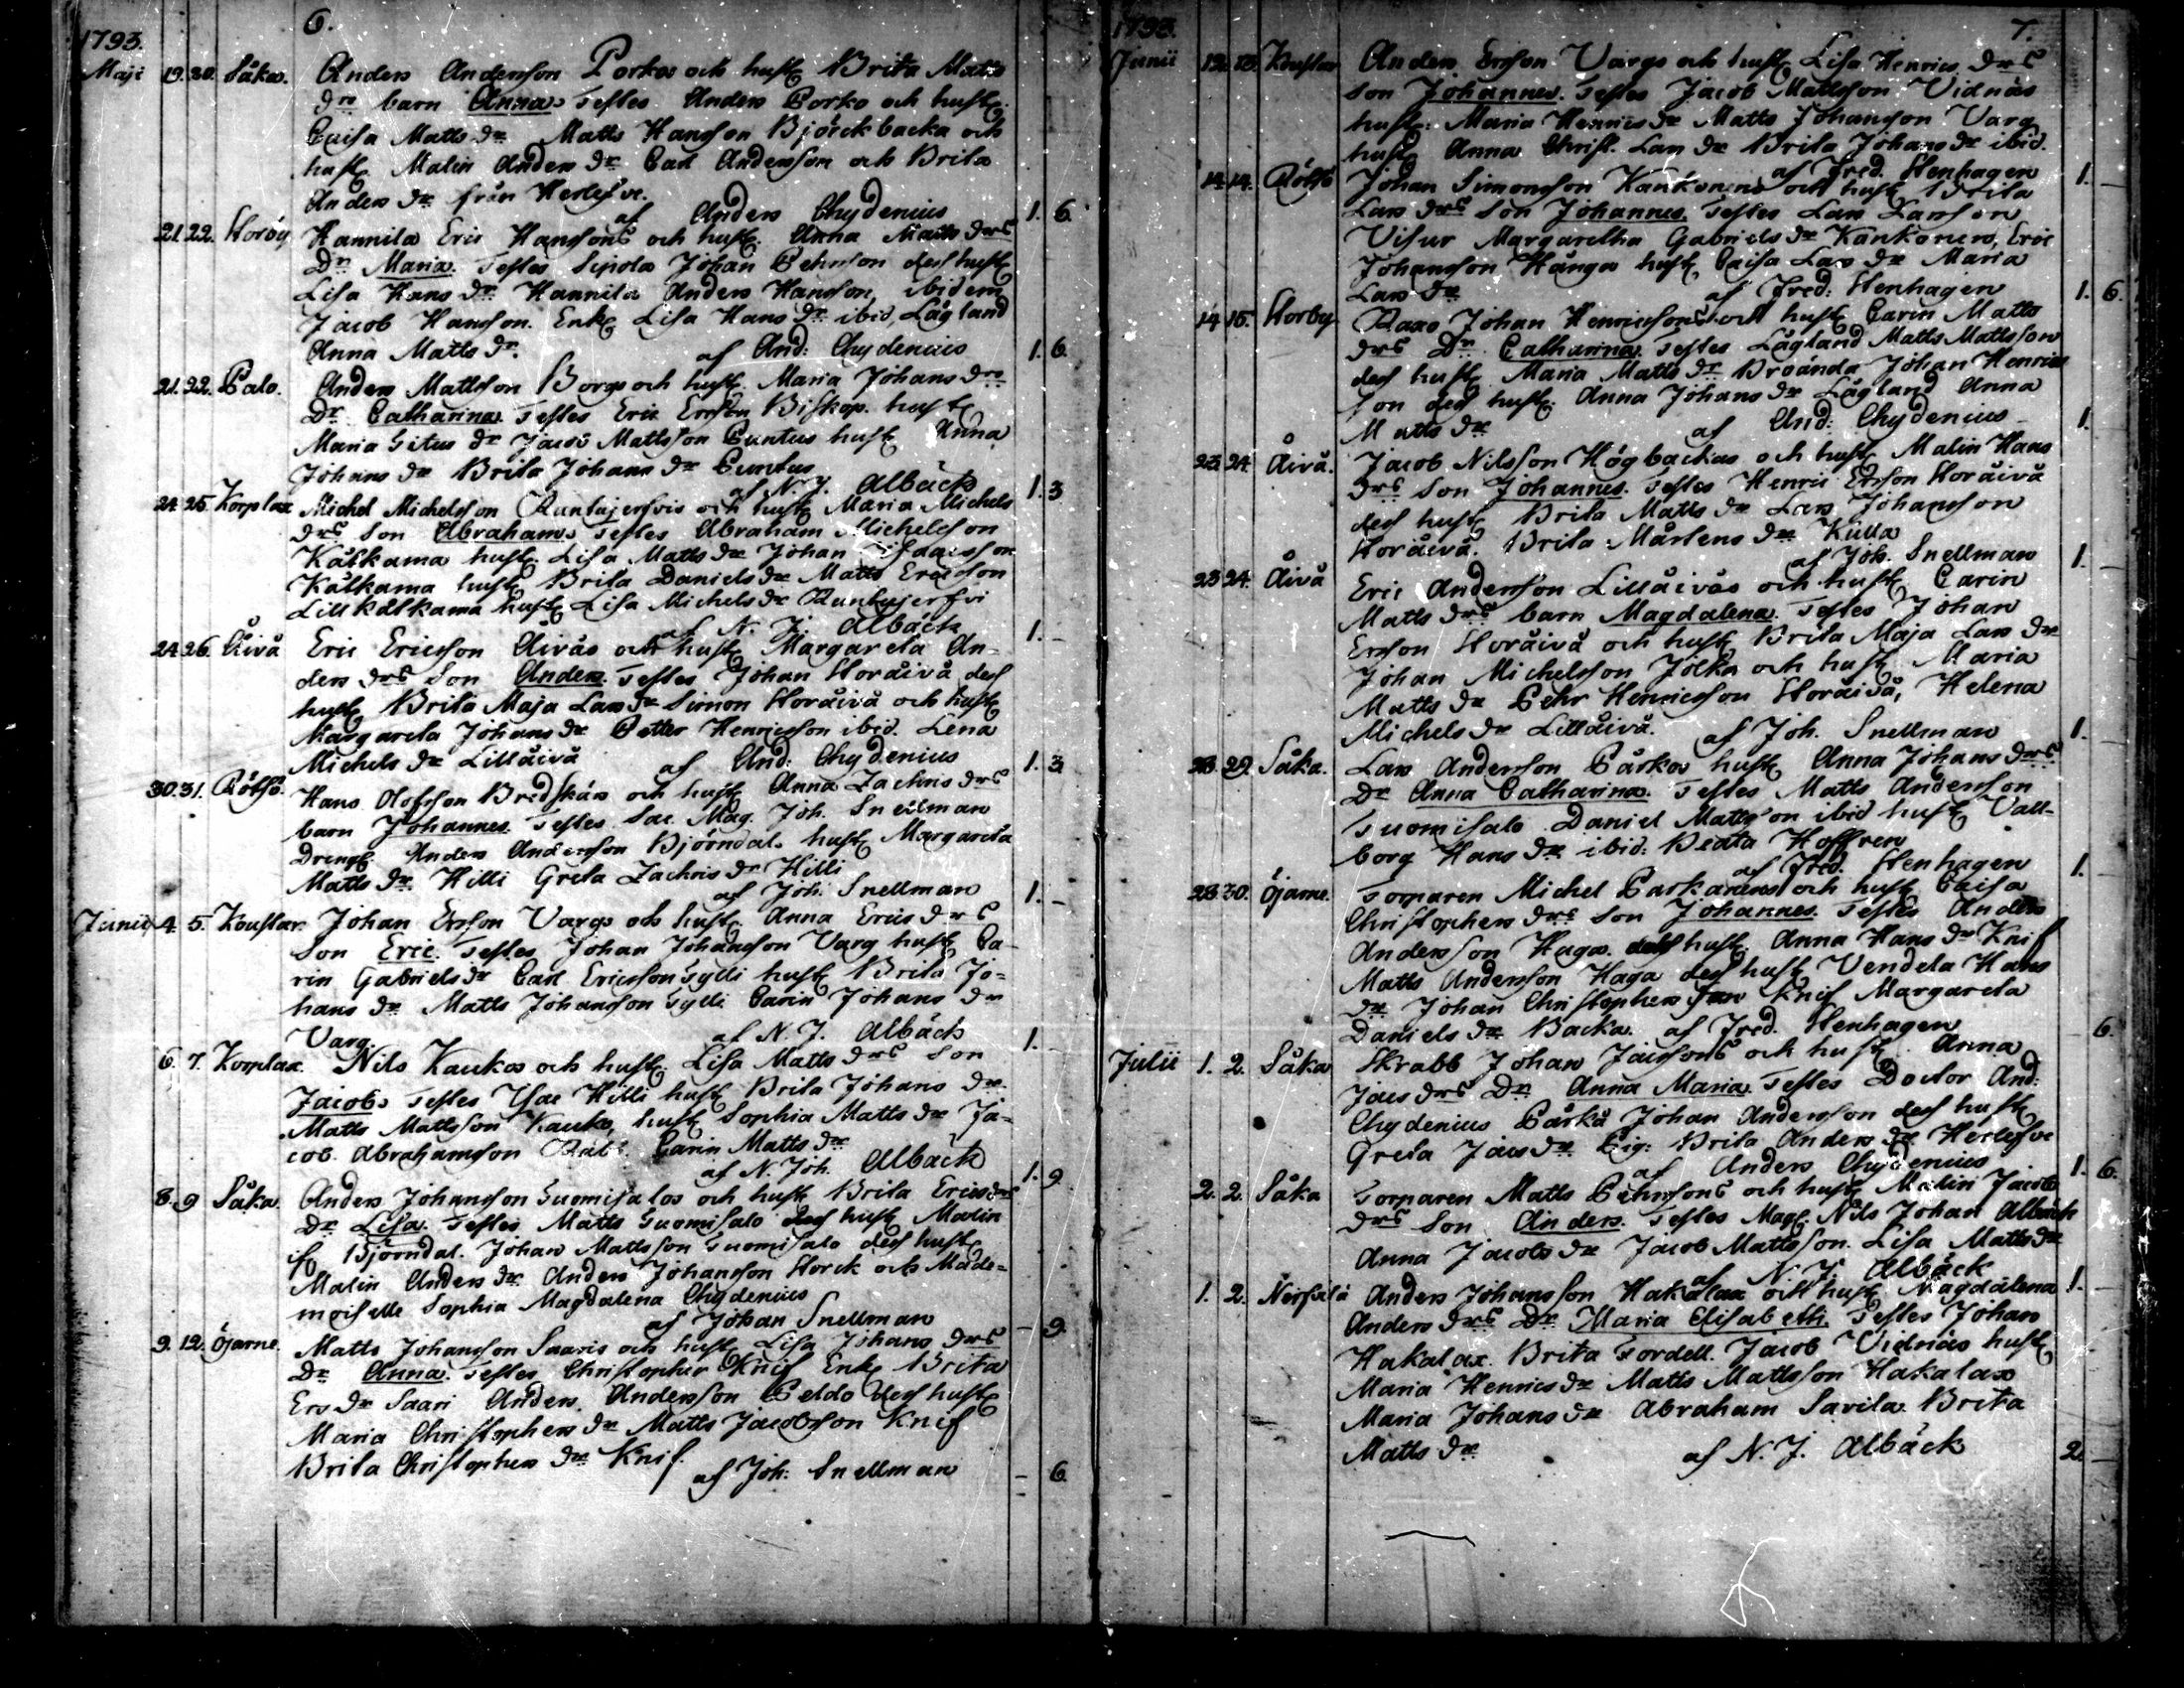 6.
1793.
Maji 19. 20. Såka. Anders Andersson Porkos och hustr Brita Matts
drs barn Anna. Testes Anders Porko och hustr.
Caisa Matts dr Matts Hansson Björckbacka och
hustr Malin Anders dr Carl Andersson och Brita
Anders dr från Herlefve.
af Anders Chydenius 1. 6.
21. 22. Storby Hannila Eric Hanssons och hustr. Anna Matts drs
Dr Maria. Testes Sipola Johan Pehrson dess hustr
Lisa Hans dr Hannila Anders Hansson, ibidem
Jacob Hansson. Enk. Lisa Hans dr ibid, Lågland
Anna Matts dr. af And: Chydenius 1. 6.
21. 22. Palo. Anders Mattsson Borgs och hustr. Maria Johans drs
Dr Catharina. Testes Eric Ersson Biskop. hustr
Maria Titus dr Jacob Mattsson Puntus hustr Anna
Johans dr Brita Johans dr Puntus
af N. J. Albäck 1. 3
24. 25. Korplax Michel Michelsson Runtujerfvis och hustr Maria Michels
drs Son Abraham. Testes Abraham Michelsson
Kälkama hustr. Lisa Matts dr Johan
Kälkama hustr Brita Daniels dr Matts Ericsson
Lill kälkama hustr Lisa Michels dr Runtujerfvi
af N. J. Albäck 1. -
24. 26. Åivå Eric Ericsson Åivås och hustr Margareta An-
ders drs Son Anders. Testes Johan Storåivå dess
hustr Brita Maja Lars dr Simon Storåivå och hustr
Margareta Johans dr Petter Henricsson ibid. Lena
Michels dr Lillåivå af And: Chydenius 1. 3
30. 31. Röösö. Hans Olofsson Bredskärs och hustr Anna Zachris drs
barn Johannes. Testes Sac. Mag. Joh. Snellman
Dreng Anders Andersson Björndal. hustr Margareta
Matts dr. Hilli Greta Zachris dr Hilli
af Joh. Snellman 1. -
Junii 4. 5. Knustar Johan Ersson Vargs och hustr. Anna Erics drs
Son Eric. Testes Johan Johansson Varg hustr Ca-
rin Gabriels dr Carl Ericsson Gylli hustr Brita Jo-
hans dr Matts Johansson Gylli Carin Johans dr
Varg. af N. J. Albäck 1.
6. 7. Korplax. Nils Kaukos och hustr. Lisa Matts drs Son
Jacob. Testes Isac Hilli hustr Brita Johans dr
Matts Mattsson Kauko, hustr Sophia Matts dr Ja-
cob Abrahamsson Carin Matts dr
af N. Joh. Albäck 1. 9
8. 9 Såka. Anders Johansson Suomisalos och hustr Brita Erics drs
Dr Lisa. Testes Matts Suomisalo dess hustr Malin
if Björndal. Johan Mattsson Suomisalo dess hustr
Malin Anders dr Anders Johansson Storck och Made-
moiselle Sophia Magdalena Chydenius
af Johan Snellman - 9.
9. 12. Öjarne. Matts Johansson Saaris och hustr. Lisa Johans drs
Dr Anna. Testes Christopher Knif Enk. Brita
Ers dr Saari Anders Andersson Peldo dess hustr
Maria Christophers dr Matts Jacobsson Knif
Brita Christophers dr Knif.
af Joh: Snellman - 6.
7.
1793.
Junii 12. 13. Knustar Anders Ersson Vargs och hustr Lisa Henrics drs
Son Johannes. Testes Jacob Mattsson Vidnäs
hustr: Maria Henrics dr Matts Johansson Varg
hustr Anna Christ. Lars dr Brita Johans dr ibid.
af Fred. Stenhagen 1. -
14. 14. Röösö Johan Simonsson Kankonens och hustr Brita
Lars drs Son Johannes. Testes Lars Larsson
Visur Margaretha Gabriels dr Kankonen, Eric
Johansson Hånga hustr Caisa Lars dr Maria
Lars dr af Fred: Stenhagen 1. 6.
14. 15. Storby Raso Johan Henricssons och hustr Carin Matts
drs Dr Catharina. Testes Lågland Matts Mattsson
dess hustr. Maria Matts dr Broända Johan Henrics
son dess hustr. Anna Johans dr Lågland Anna
Matts dr af And: Chydenius 1.
23. 24. Åivå. Jacob Nilsson Högbackas och hustr Malin Hans
drs Son Johannes. Testes Henric Ersson Storåivå
dess hustr Brita Matts dr Lars Johansson
Storåivå. Brita Mårtens dr Kulla
af Joh. Snellman 1. -
23. 24. Åivå Eric Andersson Lillåivås och hustr Carin
Matts drs barn Magdalena. Testes Johan
Ersson Storåivå och hustr Brita Maja Lars dr
Johan Michelsson Jolka och hustr Maria
Matts dr Pehr Henricsson Storåivå, Helena
Michels dr Lillåivå. af Joh. Snellman 1.
28. 29. Såka. Lars Andersson Pårkos hustr Anna Johans drs
Dr Anna Catharina. Testes Matts Andersson
Suomisalo Daniel Mattsson ibid hustr Vall-
borg Hans dr ibid: Beata Hoffren
af Fred. Stenhagen 1. -
28. 30. Öjarne. Torparen Michel Parkanens och hustr Caisa
Christophers drs Son Johannes. Testes Anders
Andersson Haga. dess hustr. Anna Hans dr Knif
Matts Andersson Haga dess hustr Vendela Hans
dr Johan Christophersson Knif Margareta
Daniels dr Backa. af Fred. Stenhagen 6.
Julii 1. 2. Såka Skrabb Johan Jacssons och hustr. Anna
Jacs drs Dr Anna Maria. Testes Doctor And:
Chydenius Pårkå Johan Andersson dess hustr
Greta Jacs dr Pig: Brita Anders dr Herlefve
af Anders Chydenius 1. 6.
2. 2. Såka Torparen Matts Pehrssons och hustr Malin Jacobs
drs Son Anders. Testes Mag. Nils Johan Albäck
Anna Jacobs dr Jacob Mattsson. Lisa Matts dr
af N. J. Albäck 1. -
1. 2. Nerfvilä Anders Johansson Hakalax och hustr Magdalena
Anders drs Dr Maria Elisabeth. Testes Johan
Hakalax. Brita Fordell. Jacob Vidnäs hustr
Maria Henrics dr Matts Mattsson Hakalax
Maria Johans dr Abraham Savila Brita
Matts dr af N. J. Albäck 2. -